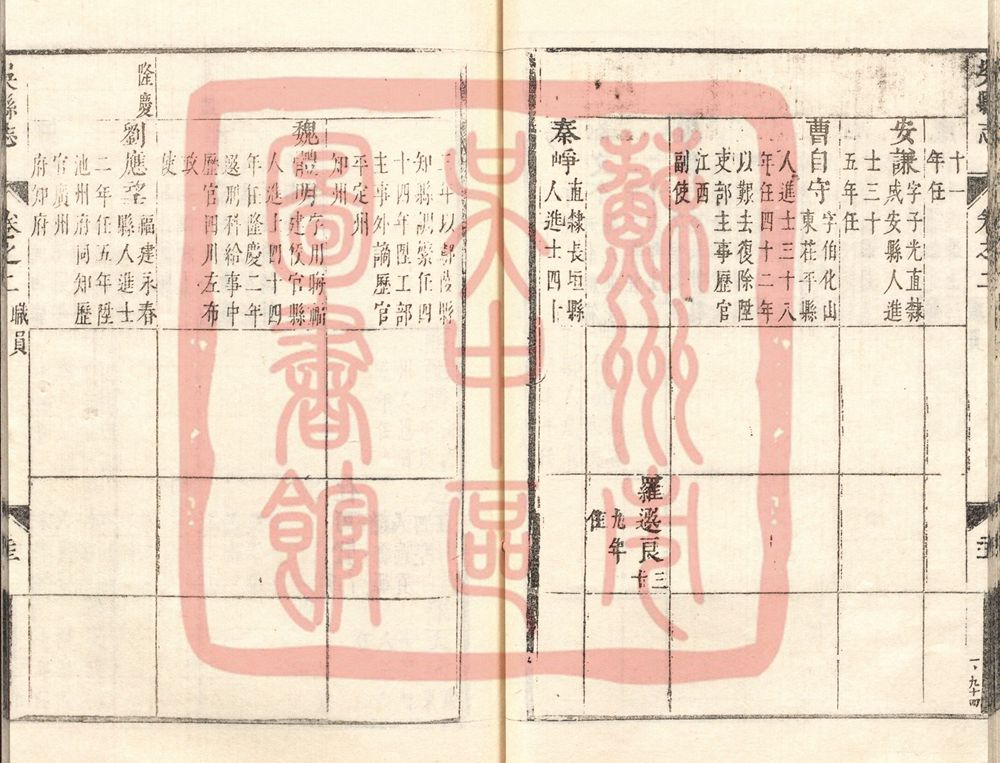 吳縣志
十一
年任
安謙字子光直隸
成安縣人進
士三十
五年任
曹自守字伯化山
東茌平縣
人進士三十八
年任四十二年
以艱去復除陞
吏部主事歷官
江西
副使
羅選良三十
九年
任
秦崢直隸長垣縣
人進士四十
一、九十四
三年以
知縣調繁任四
十四年陞工部
主事外謫歷官
平定州
知州
魏體明字用晦福
建侯官縣
人進士四十四
年任隆慶二年
選刑科給事中
歷官四川左布
政
使
隆慶
劉應望福建永春
縣人進士
二年任五年陞
池州府同知歷
官廣州
府知府
吳縣志
卷之二
職員
蘇州市
吳中區
圖書館